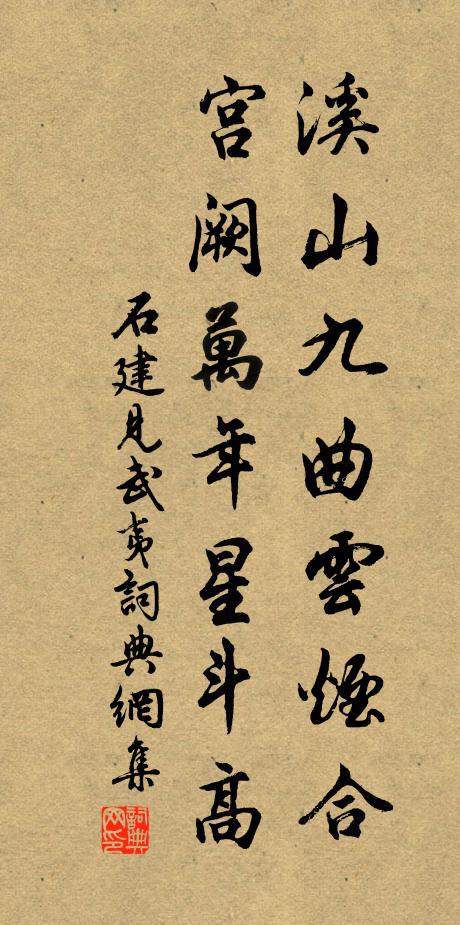 溪山九曲雲煙合
宮闕萬年星斗高
石建見武夷詞典網集
詞典网印